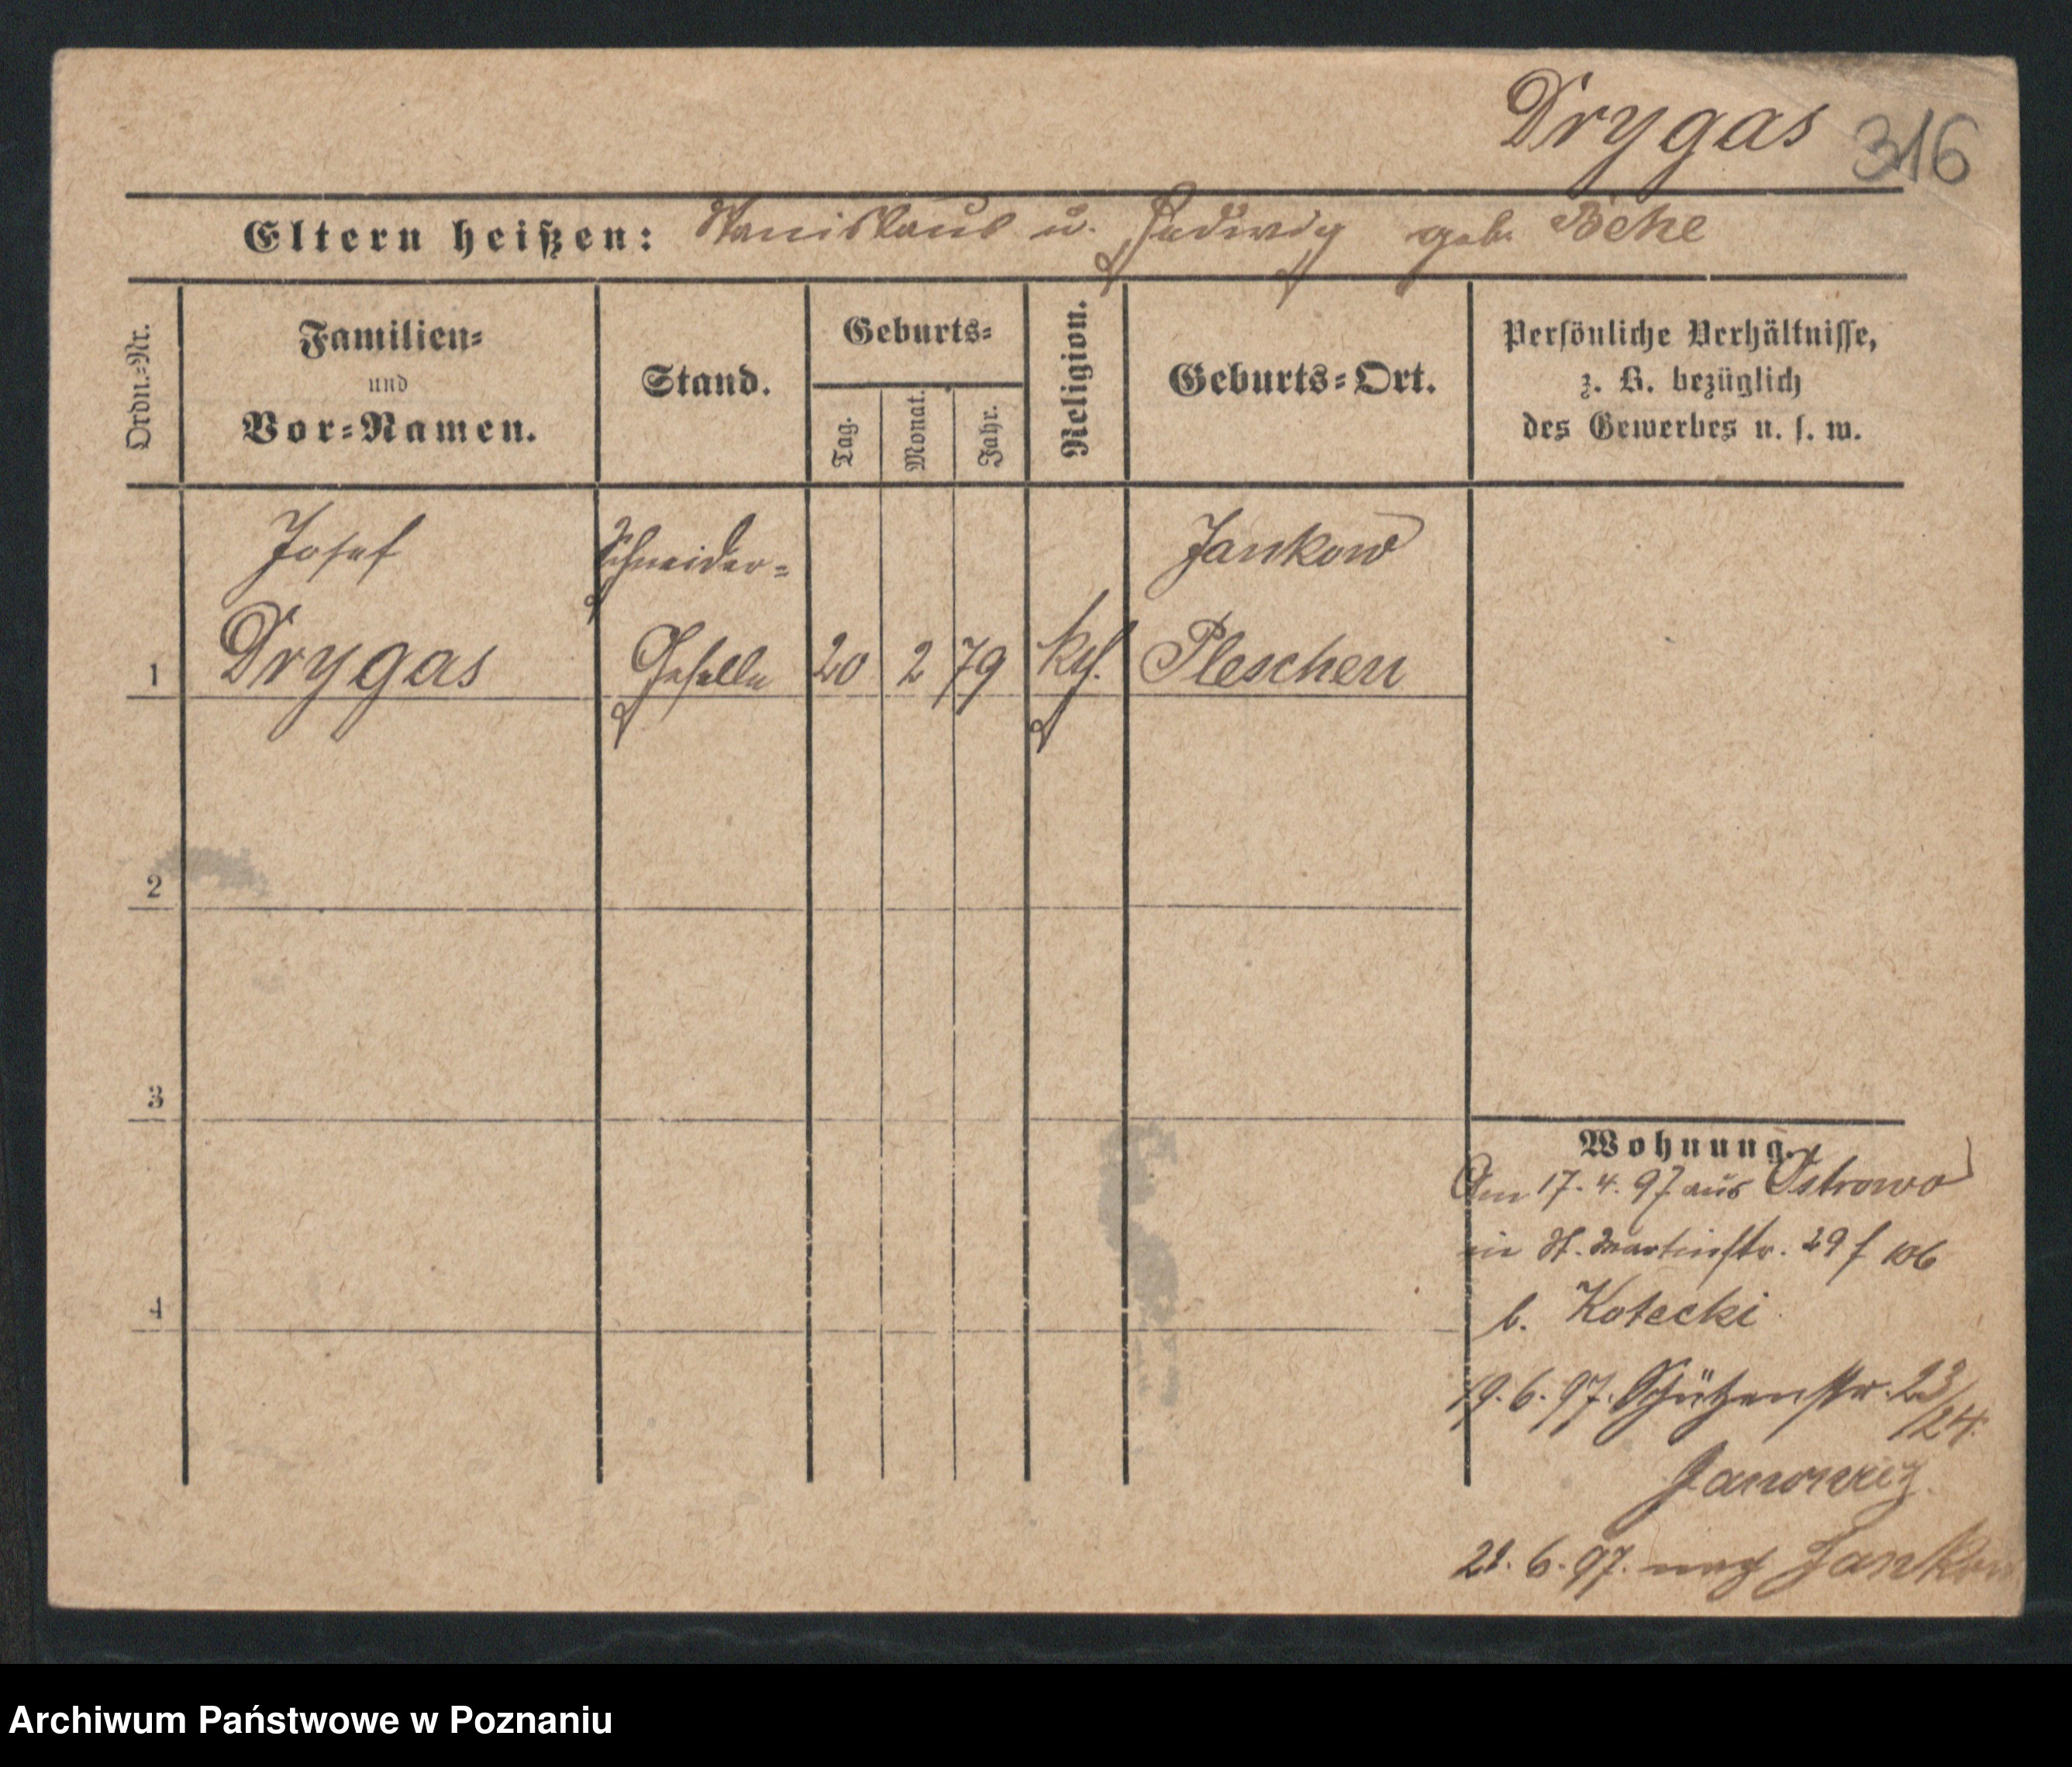 Drygas 316
Eltern heißen: Stanislaus u. Hedwig geb. Beke
Ordn.=Nr.
Familien=
und
Vor=Namen.
Stand.
Geburts=
Tag.
Monat.
Jahr.
Religion.
Geburts=Ort.
Persönliche Verhältnisse,
z. B. bezüglich
des Gewerbes u. s. w.
Josef Schneider= Jankow
1 Drygas Geselle 20 2 79 kth. Pleschen
2
3
4
Wohnung.
Am 17. 4. 97 aus Ostrowo
in St. Martinstr. 29 f 106
b. Kotecki
19. 6. 97. Schützenstr. 23/24.
Janowicz.
21. 6. 97. nach Jankow
Archiwum Państwowe w Poznaniu